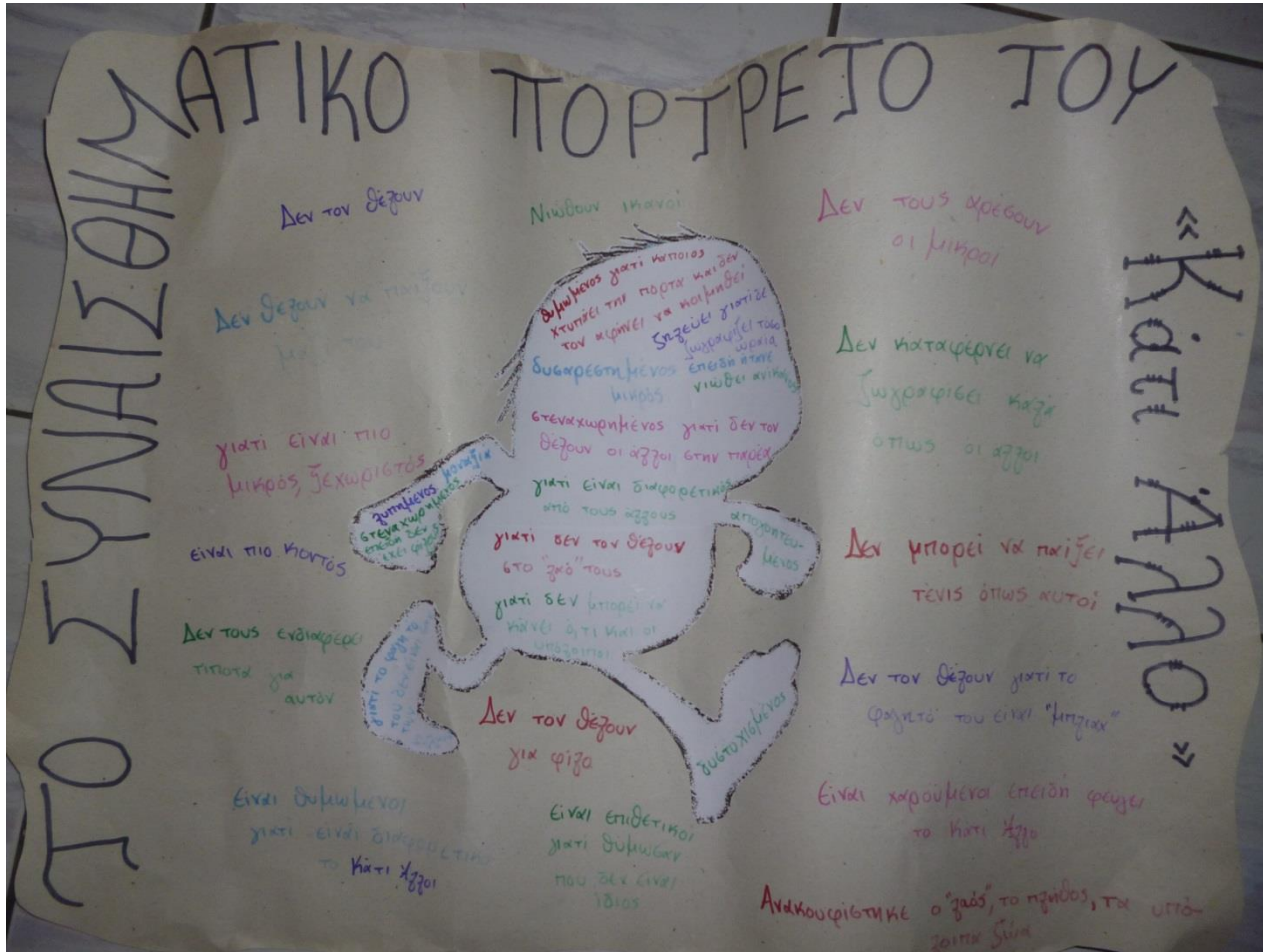 ΤΟ ΣΥΝΑΙΣΘΗΜΑΤΙΚΟ ΠΟΡΤΡΕΤΟ ΤΟΥ
«Κάτι Άλλο»
Δεν τον θέλουν
Δεν θέλουν να παίξουν
μαζί του
γιατί είναι πιο
μικρός, ξεχωριστός
είναι πιο κοντός
Δεν τους ενδιαφέρει
τίποτα για
αυτόν
Είναι θυμωμένοι
γιατί είναι διαφορετικό
το Κάτι Άλλο
Νιώθουν ικανοί
θυμωμένος γιατί κάποιος
χτυπάει την πόρτα και δεν
τον αφήνει να κοιμηθεί
ζηλεύει γιατί δε
ζωγραφίζει τόσο
ωραία
δυσαρεστημένος επειδή ήτανε
μικρός
νιώθει ανίκανος
στεναχωρημένος γιατί δεν τον
θέλουν οι άλλοι στην παρέα
γιατί είναι διαφορετικός
από τους άλλους
γιατί δεν τον θέλουν
στο "λαό" τους
γιατί δεν μπορεί να
κάνει ό,τι και οι
υπόλοιποι
μοναξιά
λυπημένος
στεναχωρημένος
επειδή δεν
έχει φίλους
απογοητευ-
μένος
γιατί το φαγητό
του δεν είναι
δυστυχισμένος
Δεν τον θέλουν
για φίλο
είναι επιθετικοί
γιατί θύμωσαν
που δεν είναι
ίδιος
Δεν τους αρέσουν
οι μικροί
Δεν καταφέρνει να
ζωγραφίσει καλά
όπως οι άλλοι
Δεν μπορεί να παίξει
τένις όπως αυτοί
Δεν τον θέλουν γιατί το
φαγητό του είναι "μπλιαχ"
Είναι χαρούμενοι επειδή φεύγει
το Κάτι Άλλο
Ανακουφίστηκε ο "λαός", το πλήθος, τα υπό-
λοιπα ζώα